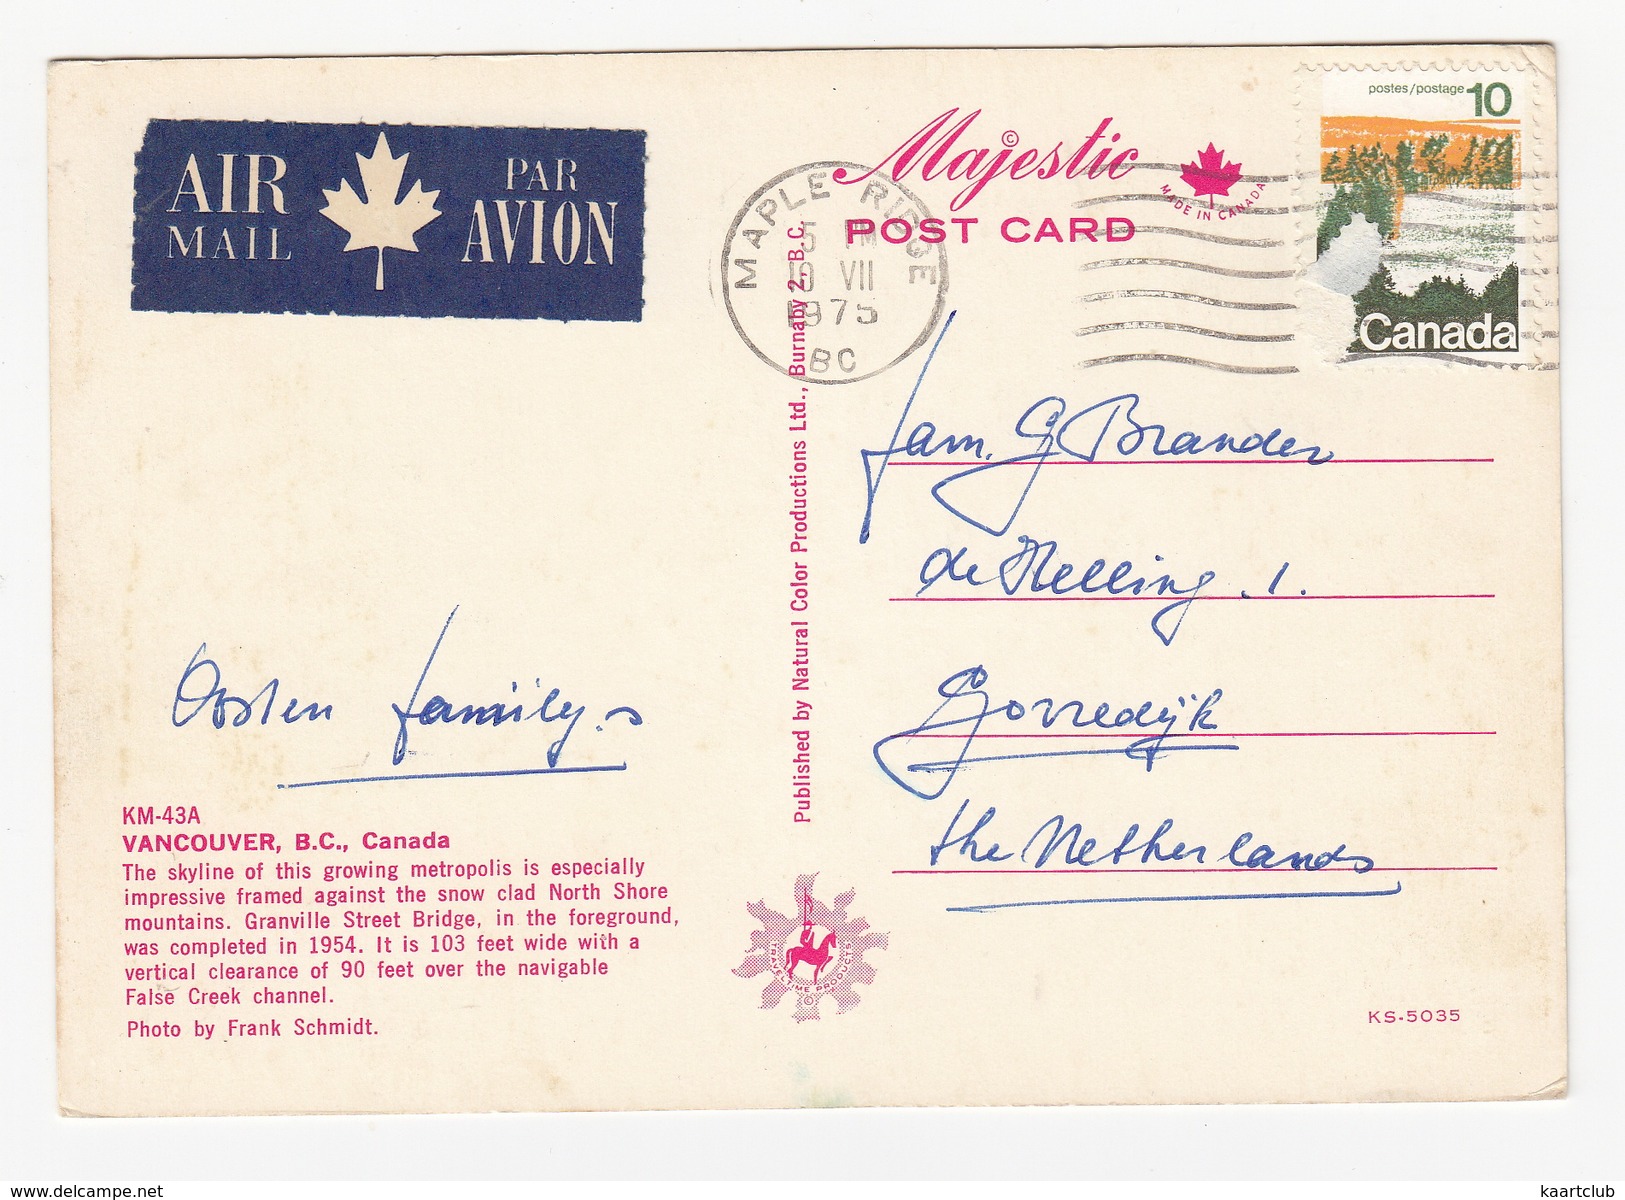 AIR
MAIL
PAR
AVION
Majestic ©
MADE IN CANADA
POST CARD
MAPLE RIDGE
5 PM
10 VII
1975
BC
postes/postage 10
Canada
Fam. G Brander
de Helling . 1.
Gorredijk
the Netherlands
Oosten family.
KM-43A
VANCOUVER, B.C., Canada
The skyline of this growing metropolis is especially
impressive framed against the snow clad North Shore
mountains. Granville Street Bridge, in the foreground,
was completed in 1954. It is 103 feet wide with a
vertical clearance of 90 feet over the navigable
False Creek channel.
Photo by Frank Schmidt.
Published by Natural Color Productions Ltd., Burnaby 2, B.C.
TRAVELTIME PRODUCTS
©
KS-5035
www.delcampe.net
kaartclub